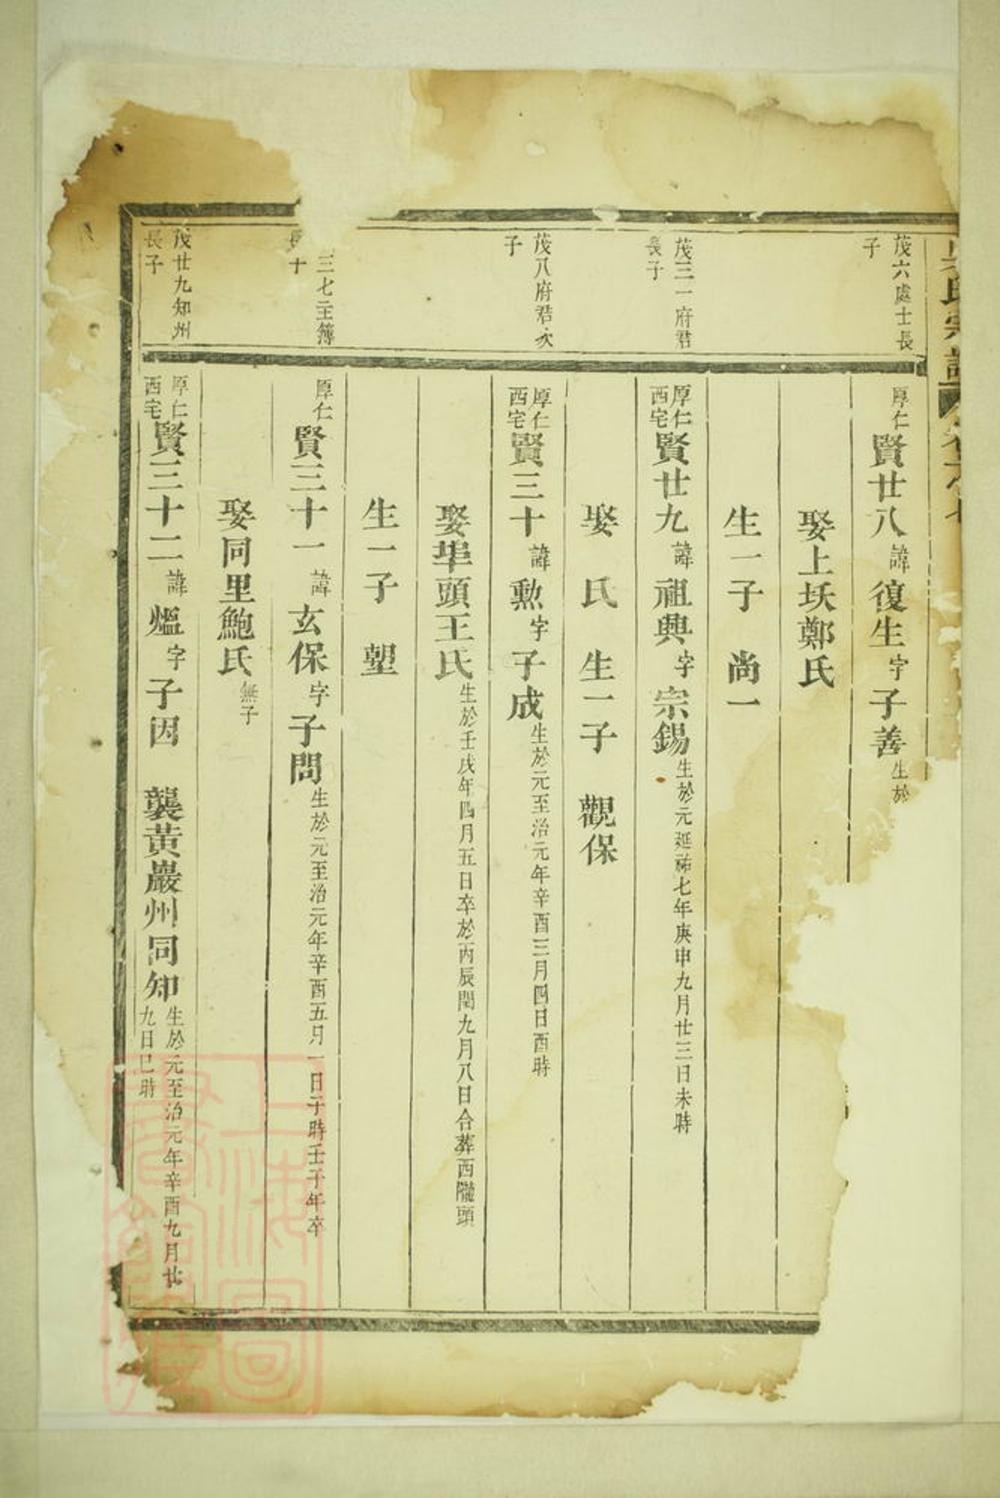 氏宗譜
茂六處士長
子
厚仁
賢廿八諱復生字子善生於
娶上坃鄭氏
生一子 尚一
茂三一府君
長子
厚仁
西宅
賢廿九諱祖興字宗錫生於元延祐七年庚申九月廿三日未時
娶 氏 生一子 觀保
茂八府君次
子
厚仁
西宅
賢三十諱勲字子成生於元至治元年辛酉三月四日酉時
娶埠頭王氏生於壬戌年四月五日卒於丙辰閏九月八日合葬西隴頭
生一子 塱
三七主簿
長子
厚仁
賢三十一諱玄保字子問生於元至治元年辛酉五月一日子時壬子年卒
娶同里鮑氏無子
茂廿九知州
長子
厚仁
西宅
賢三十二諱熅字子因 襲黃巖州同知生於元至治元年辛酉九月廿
九日巳時
上海圖
書館藏